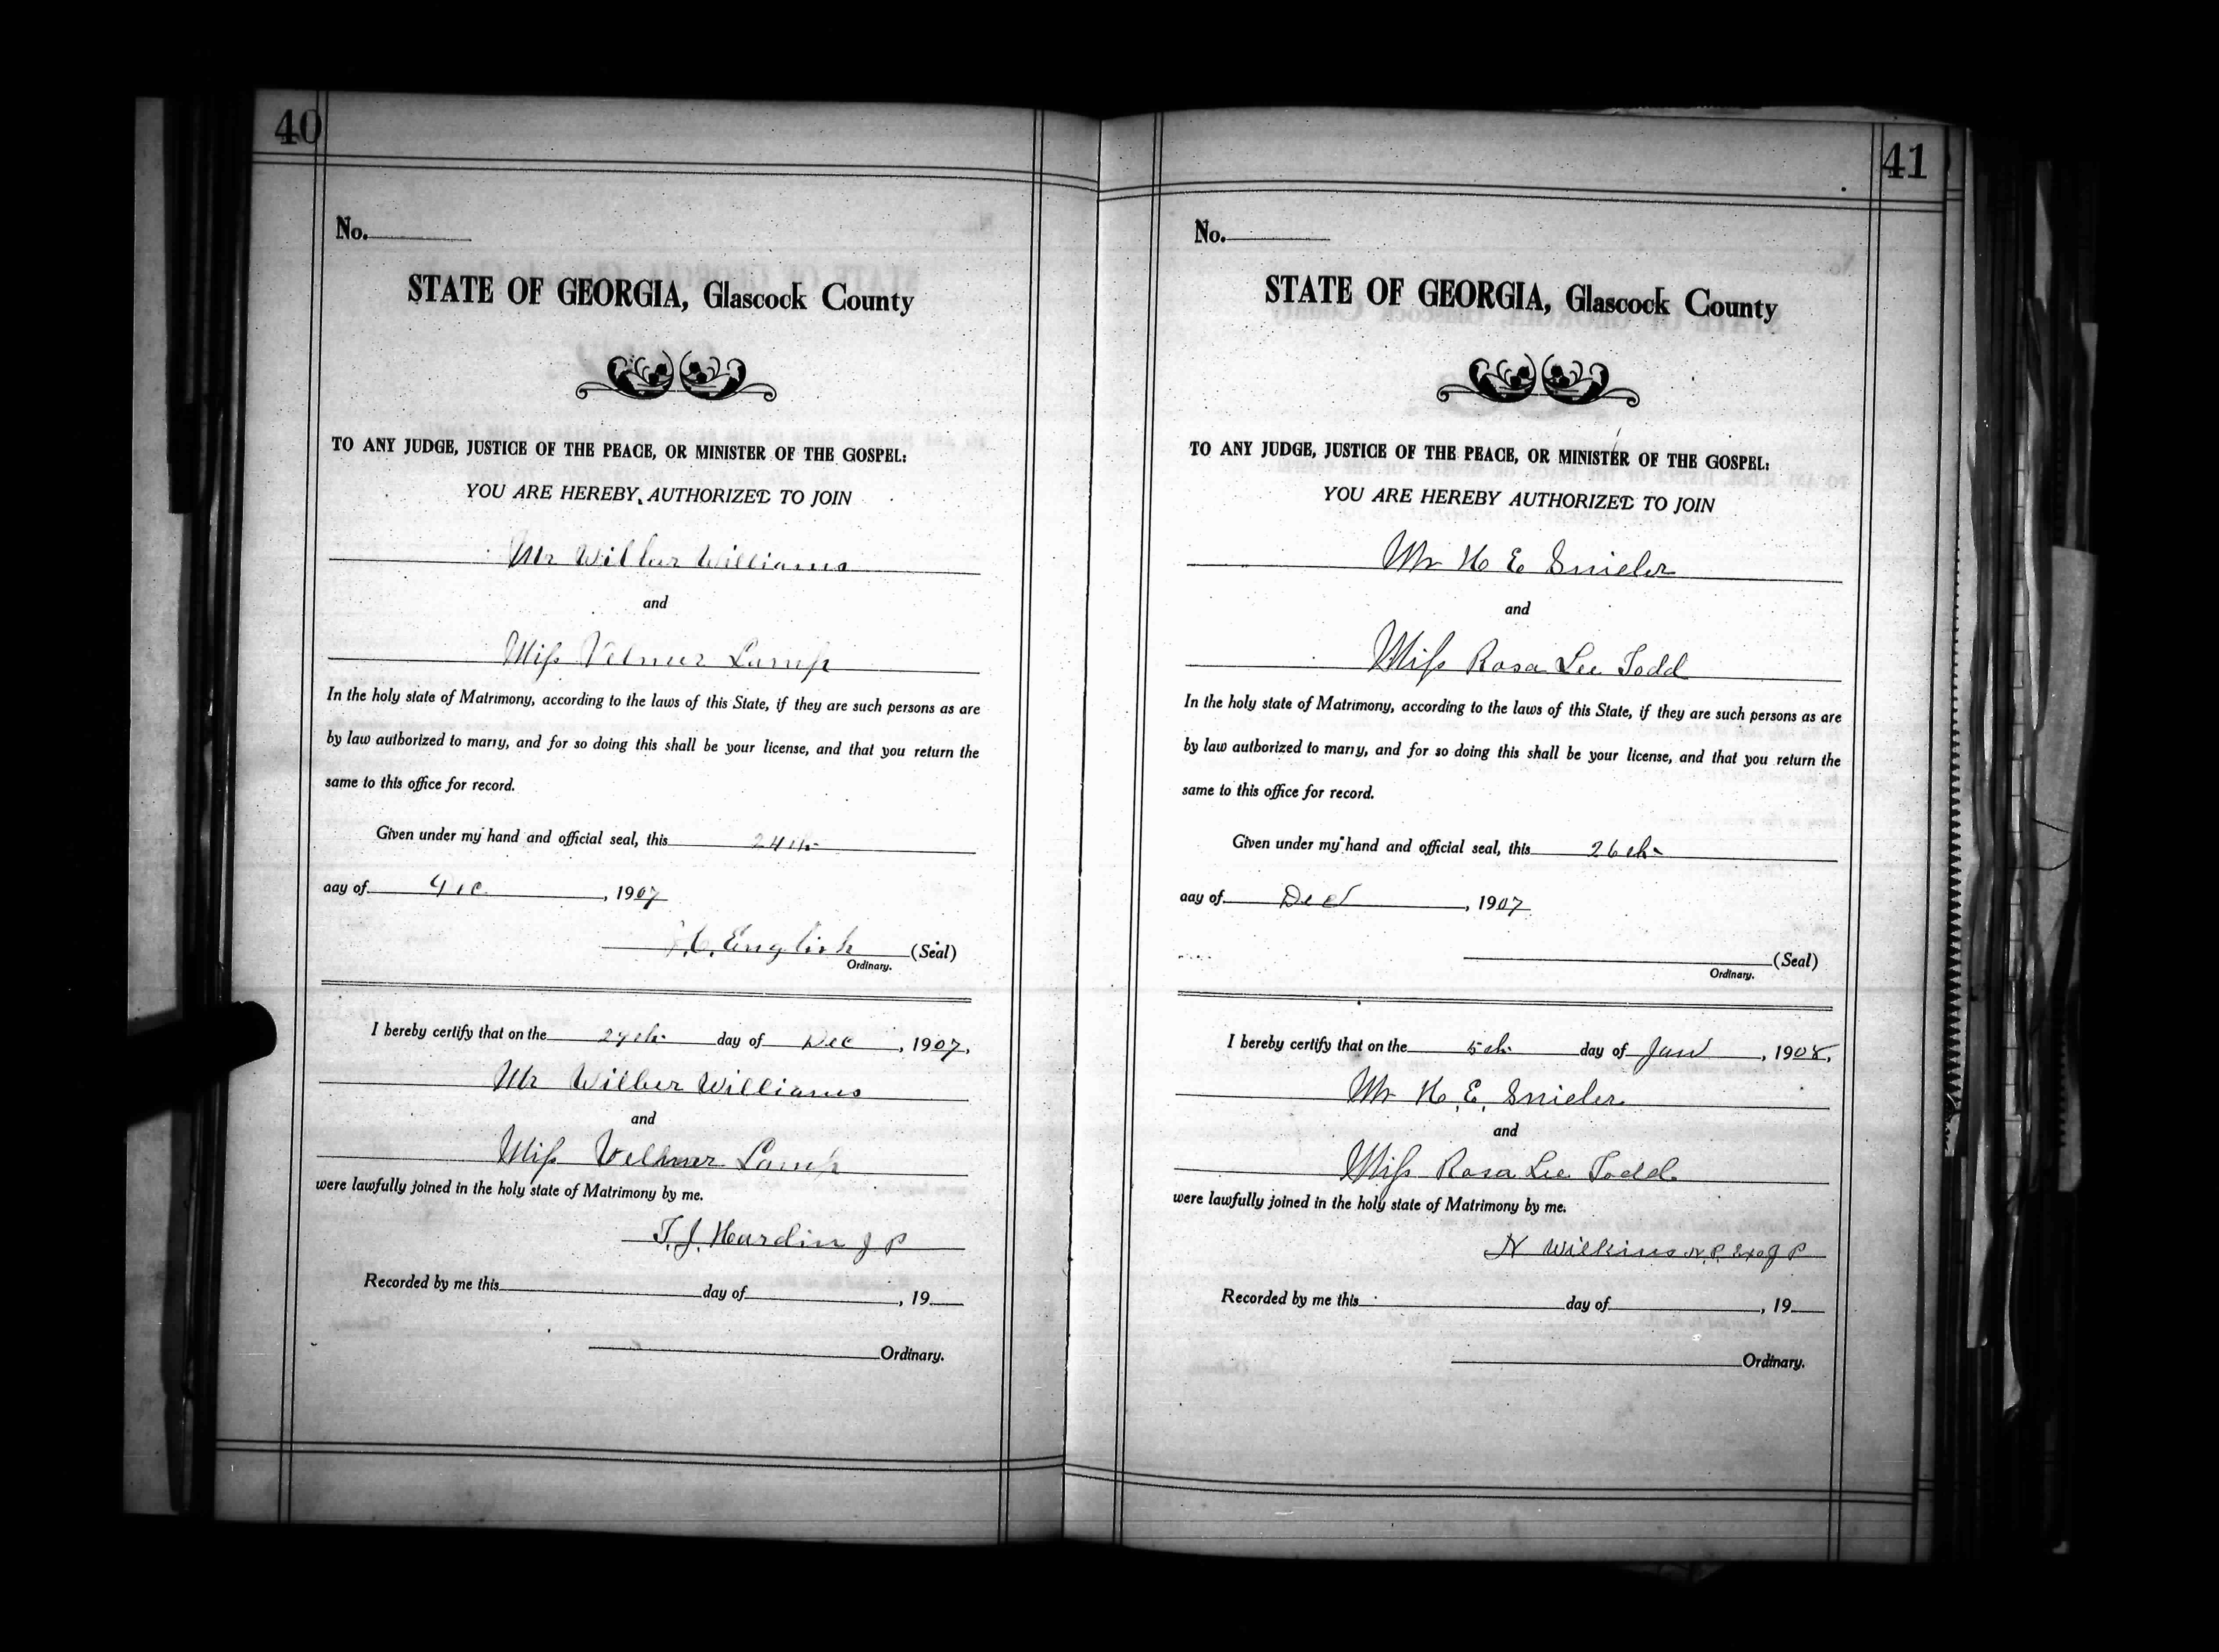 40
No.
STATE OF GEORGIA, Glascock County
TO ANY JUDGE, JUSTICE OF THE PEACE, OR MINISTER OF THE GOSPEL:
YOU ARE HEREBY AUTHORIZED TO JOIN
Mr Wilbur Williams
and
Miss Velmer Lamp
In the holy state of Matrimony, according to the laws of this State, if they are such persons as are
by law authorized to marry, and for so doing this shall be your license, and that you return the
same to this office for record.
Given under my hand and official seal, this 24th
day of Dec, 1907
English (Seal)
Ordinary.
I hereby certify that on the day of Dec, 1907.
Mr Wilber Williams
and
Miss Vellmer Lamp
were lawfully joined in the holy state of Matrimony by me.
T. J. Hardin J P
Recorded by me this day of , 19
Ordinary.
41
No.
STATE OF GEORGIA, Glascock County
TO ANY JUDGE, JUSTICE OF THE PEACE, OR MINISTER OF THE GOSPEL:
YOU ARE HEREBY AUTHORIZED TO JOIN
Mr H E
and
Miss Rosa Lee Todd
In the holy state of Matrimony, according to the laws of this State, if they are such persons as are
by law authorized to marry, and for so doing this shall be your license, and that you return the
same to this office for record.
Given under my hand and official seal, this 26th
day of Dec, 1907
(Seal)
Ordinary.
I hereby certify that on the 5th day of Jan, 1908.
Mr H. E.
and
Miss Rosa Lee Todd
were lawfully joined in the holy state of Matrimony by me.
N Wilkins N. P. Exo J P
Recorded by me this day of , 19
Ordinary.